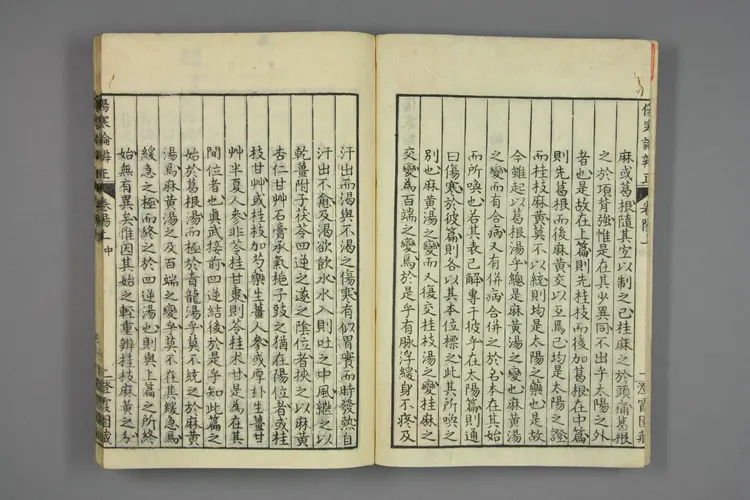 麻或葛根隨其宜以制之已桂麻之於頭痛葛根
之於項背強惟是在其少異同不出乎太陽之外
者也是故在上篇則先桂枝而後加葛根在中篇
則先葛根而後麻黃交以互爲已均是太陽之證
而桂枝麻黃莫不以統則均是太陽之藥也是故
今雖起以葛根湯乎總是麻黃湯之變也麻黃湯
之變而有合病又有併病合併之於名本在其始
而所喚也若其表已解專于彼乎在太陽篇則通
曰傷寒於彼篇則各以其本位標之此其所喚之
別也麻黃湯之變而又傷交桂枝湯之變桂麻之
交變爲百端之變爲於是乎有脉浮緩身不疼及
汗出而渴與不渴之傷寒有似胃實而時發熱自
汗出不愈及渴欲飲水水入則吐之中風繼之以
乾薑附子茯苓四逆之遂之陰位者挾之以麻黃
杏仁甘艸石膏承氣梔子豉之猶在陽位者或桂
枝甘艸或桂枝加芍藥生薑人參或厚朴生薑甘
艸半夏人參非苓桂甘棗則苓桂朮甘是爲在其
間位者也眞武接前四逆結後於是乎知此篇之
始於葛根湯而極於青龍湯乎莫不統之於麻黃
湯焉麻黃湯之及百端之變乎莫不在其緩急焉
緩急之極而終之於四逆湯也則與上篇之所終
始無有異矣惟因其始之輕重辨桂枝麻黃之分
傷寒論辨正
卷陽上
中
二
澄霞園藏